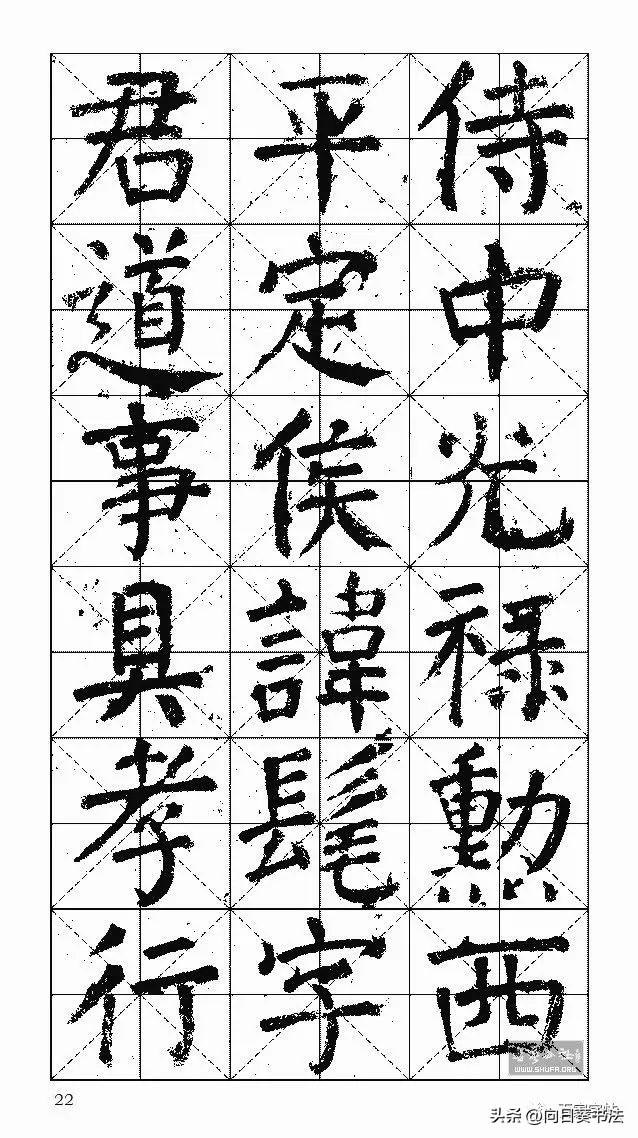 侍中光祿勳西
平定侯諱髦字
君道事具孝行
22
WWW.SHUFA.ORG
头条 @向日葵书法